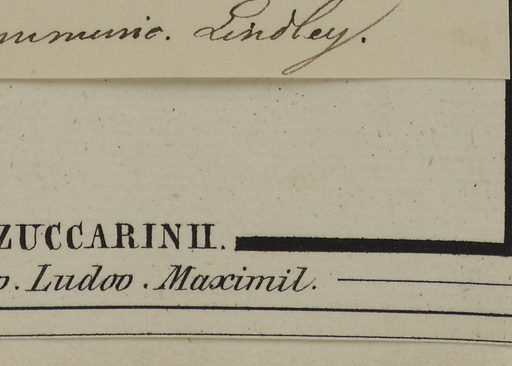 Lindley.
ZUCCARINII.
. Ludov. Maximil.